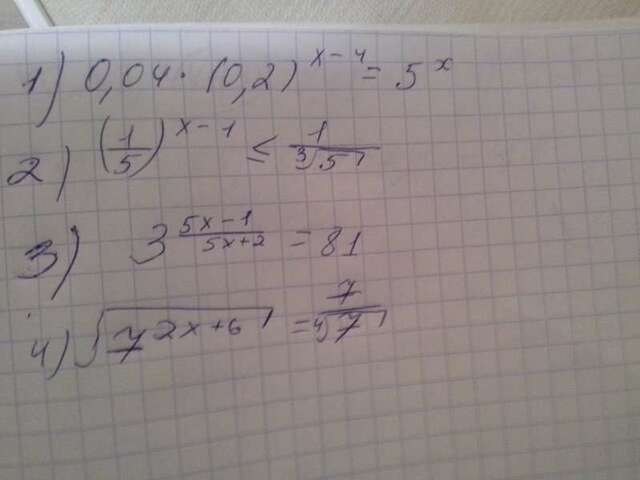 1) 0,04·(0,2)^{x-4} = 5^x
2) (1/5)^{x-1} ≤ 1/∛5
3) 3^{(5x-1)/(5x+2)} = 81
4) √(7^{2x+6}) = 7/∜7